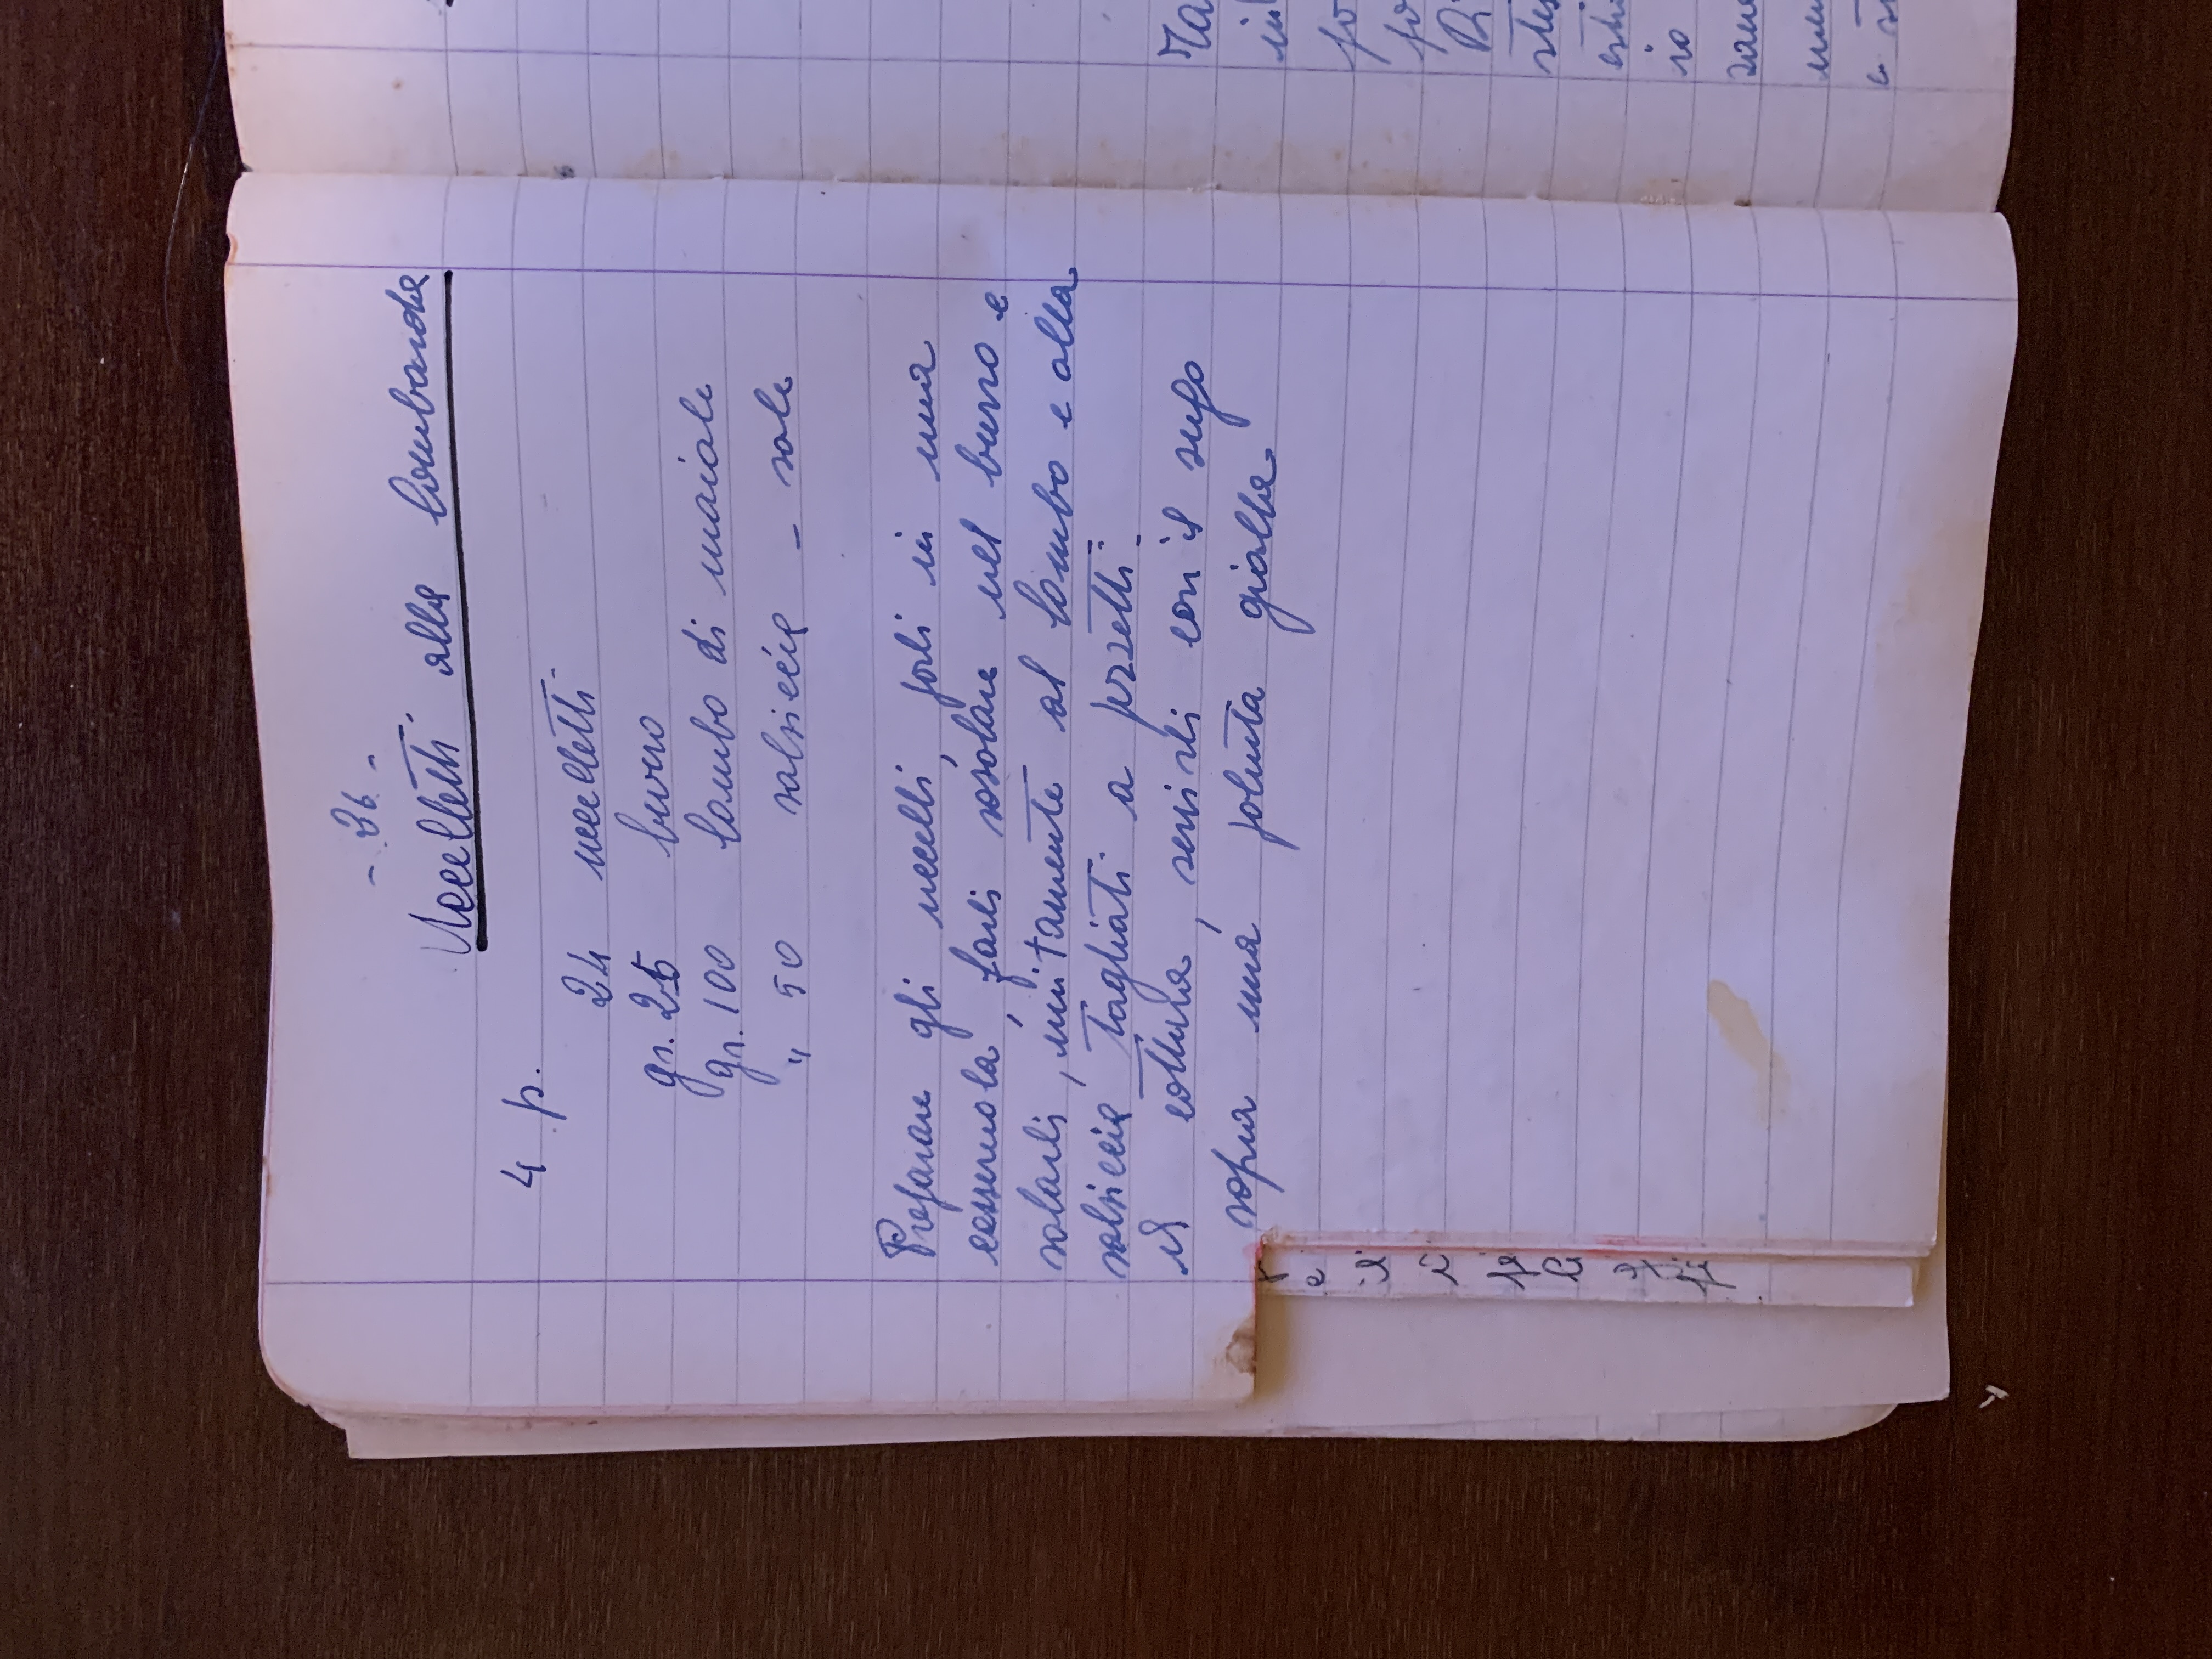 - 26 -
Uccelletti alla lombarda
4 p.
24 uccelletti
gr. 25 burro
gr. 100 lombo di maiale
" 50 salsiccia - sale
Preparare gli uccelli, porli in una
casseruola, farli rosolare nel burro e
salarli, unitamente al lombo e alla
salsiccia tagliati a pezzetti.
A cottura, servirli con il sugo
sopra una polenta gialla
Ri